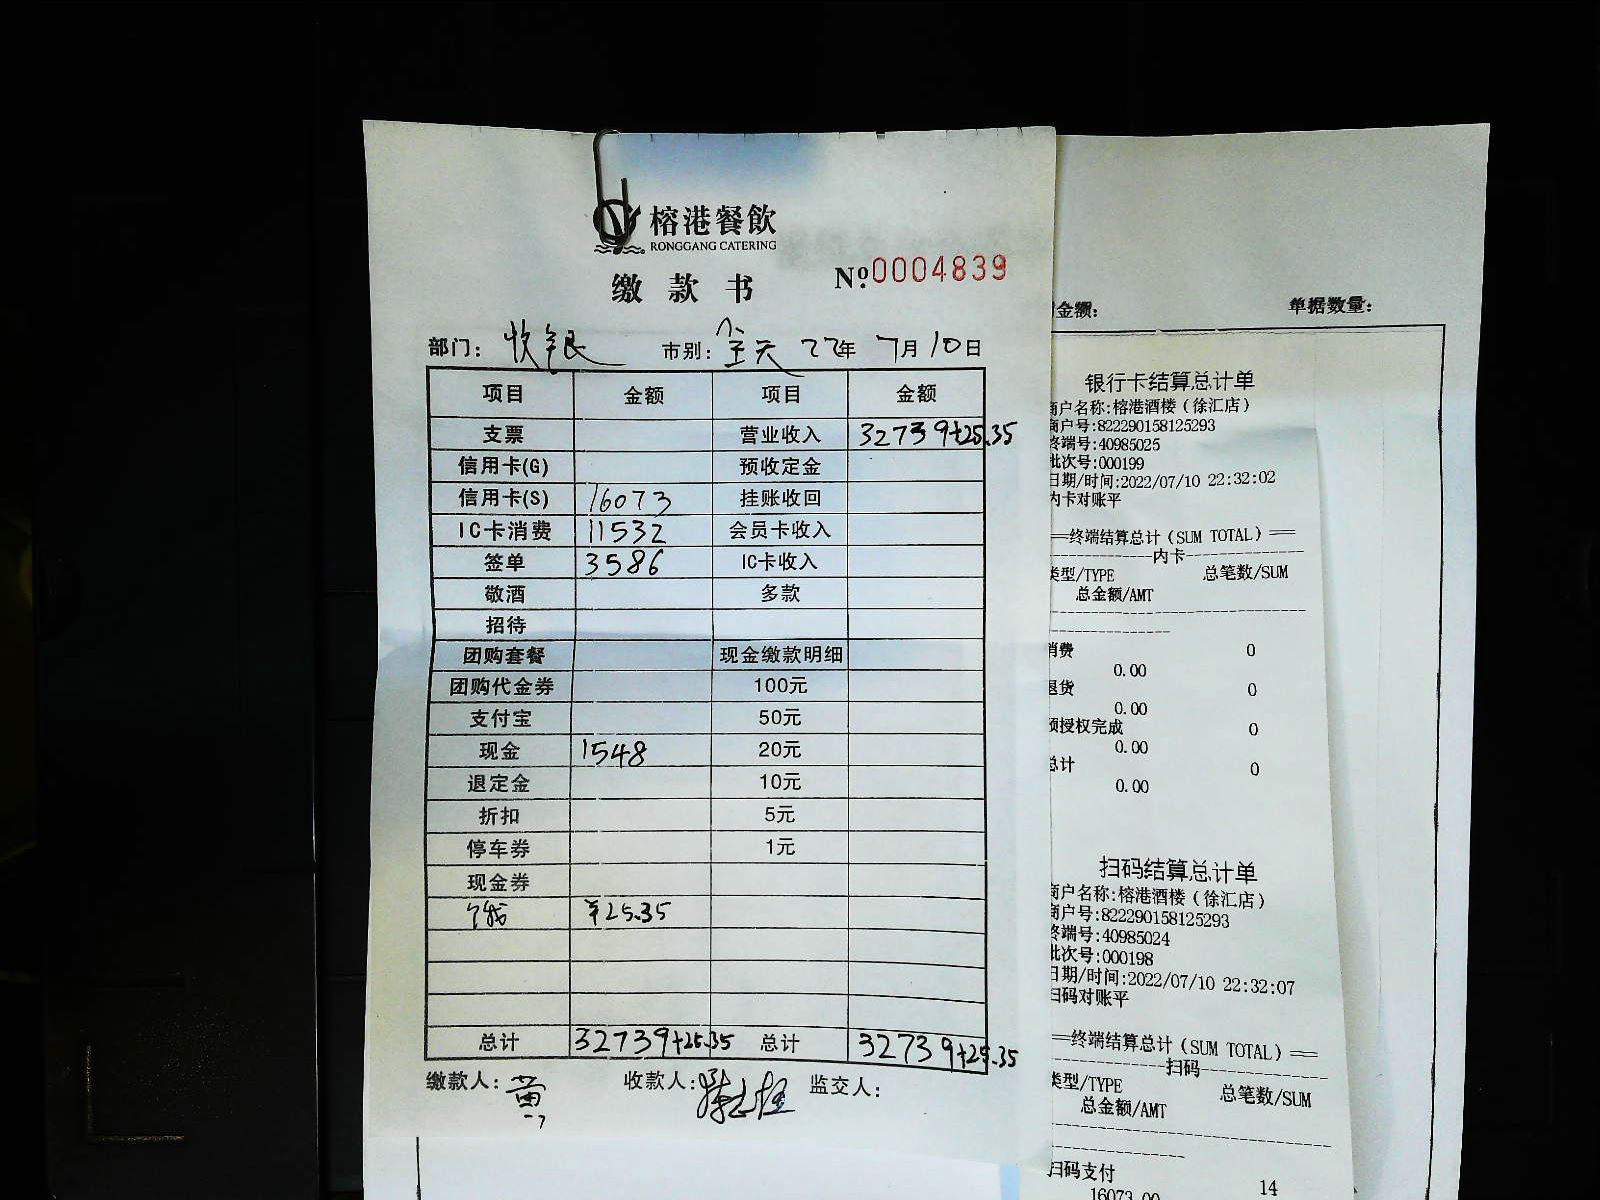 榕港餐飲
RONGGANG CATERING
缴款书
№:0004839
部门: 收银 市别: 全天 22年 7月 10日
项目 金额 项目 金额
支票 营业收入 32739+25.35
信用卡(G) 预收定金
信用卡(S) 16073 挂账收回
IC卡消费 11532 会员卡收入
签单 3586 IC卡收入
敬酒 多款
招待
团购套餐 现金缴款明细
团购代金券 100元
支付宝 50元
现金 1548 20元
退定金 10元
折扣 5元
停车券 1元
现金券
¥25.35
总计 32739+25.35 总计 32739+25.35
缴款人: 黄 收款人: 监交人:
金额: 单据数量:
银行卡结算总计单
商户名称:榕港酒楼(徐汇店)
商户号:822290158125293
终端号:40985025
批次号:000199
日期/时间:2022/07/10 22:32:02
内卡对账平
==终端结算总计(SUM TOTAL)===
---------------内卡---------------
类型/TYPE 总笔数/SUM
总金额/AMT
消费 0
0.00
退货 0
0.00
预授权完成 0
0.00
总计 0
0.00
扫码结算总计单
商户名称:榕港酒楼(徐汇店)
商户号:822290158125293
终端号:40985024
批次号:000198
日期/时间:2022/07/10 22:32:07
扫码对账平
==终端结算总计(SUM TOTAL)===
---------------扫码---------------
类型/TYPE 总笔数/SUM
总金额/AMT
扫码支付 14
16073.00